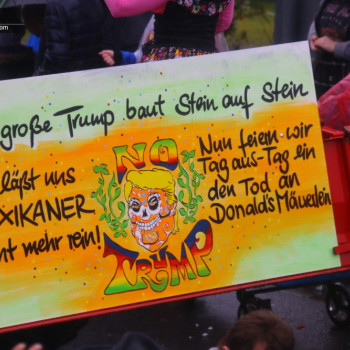 große Trump baut Stein auf Stein
läßt uns
XIKANER
nt mehr rein!
NO
TRUMP
Nun feiern wir
Tag aus-Tag ein
den Tod an
Donald's Mäuerlein